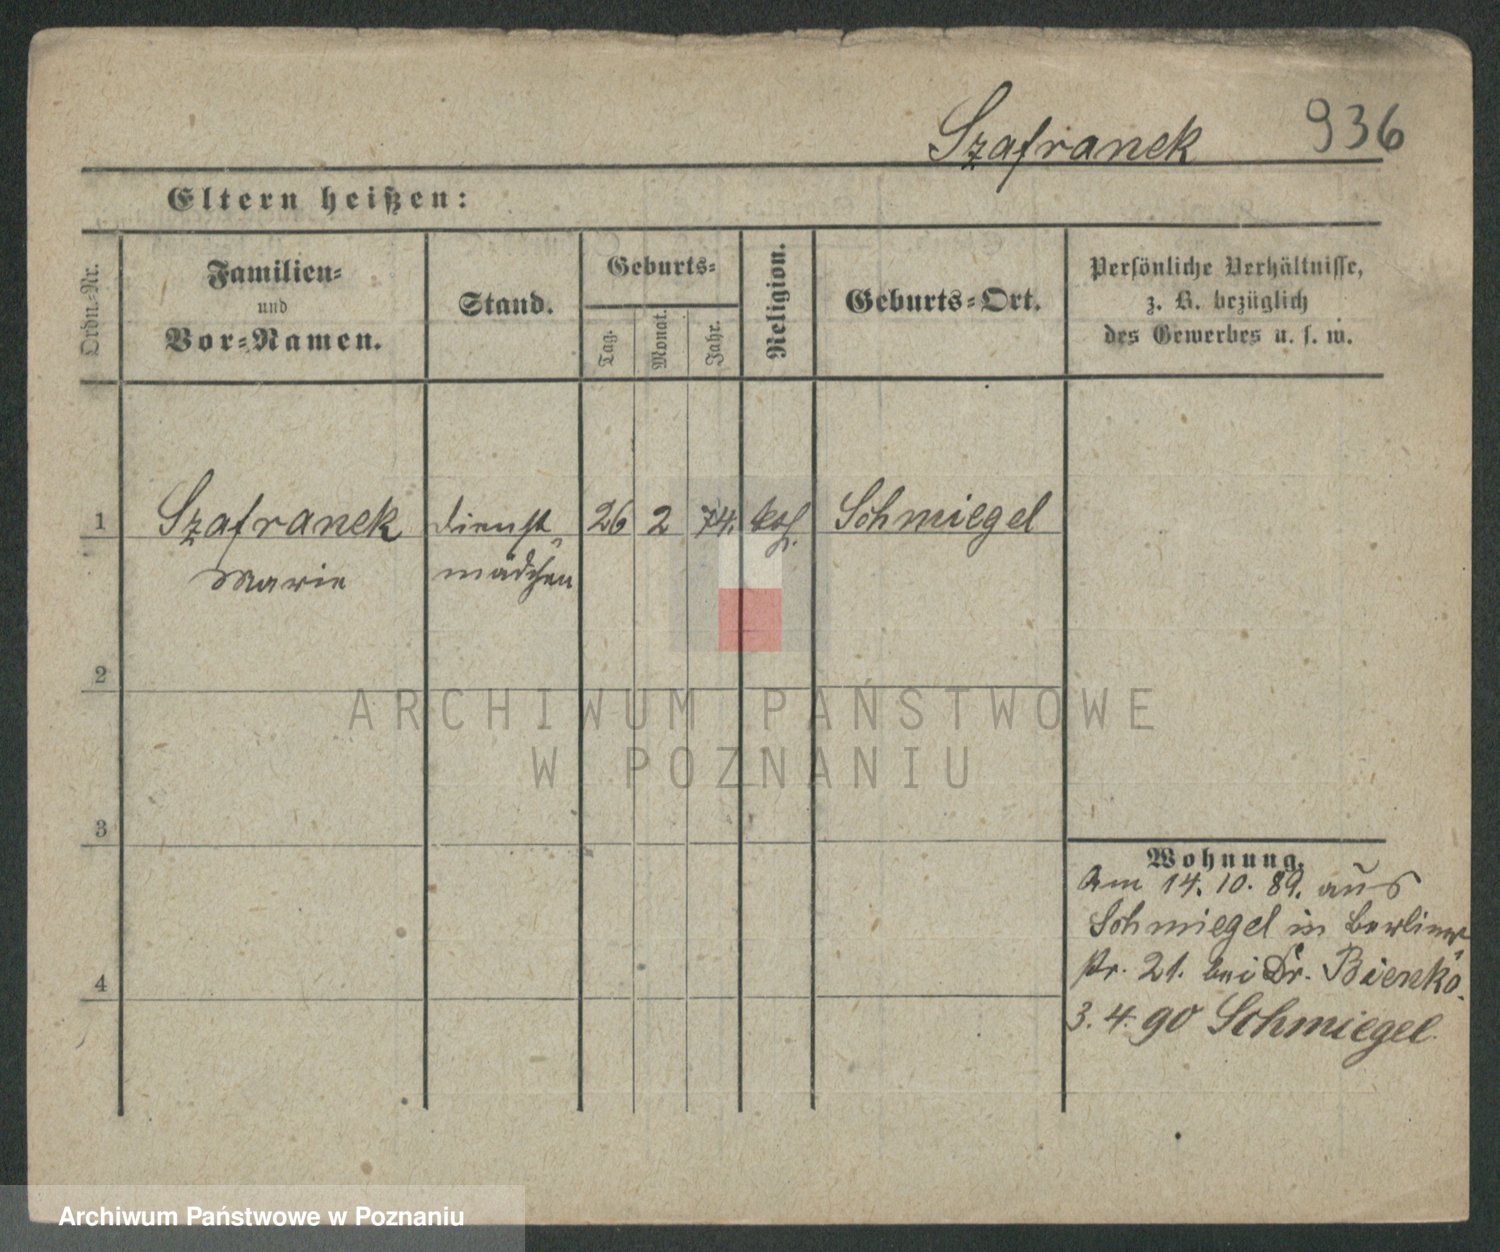 Szafranek 936
Eltern heißen:
Ordn.-Nr.
Familien-
und
Vor-Namen.
Stand.
Geburts-
Tag.
Monat.
Jahr.
Religion.
Geburts-Ort.
Persönliche Verhältnisse,
z. B. bezüglich
des Gewerbes u. s. w.
1 Szafranek Dienst- 26 2 74. kath. Schmiegel
Marie mädchen
2
3
4
Wohnung.
Am 14. 10. 89. aus
Schmiegel in Berliner-
str. 21. bei Dr. Bienko.
3. 4. 90 Schmiegel
ARCHIWUM PAŃSTWOWE
W POZNANIU
Archiwum Państwowe w Poznaniu